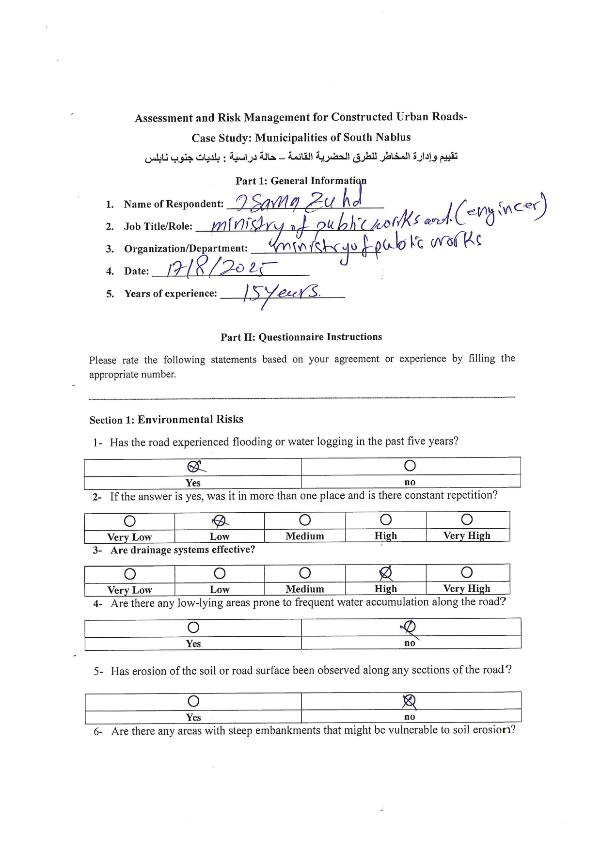 Assessment and Risk Management for Constructed Urban Roads-
Case Study: Municipalities of South Nablus
تقييم وإدارة المخاطر للطرق الحضرية القائمة – حالة دراسية : بلديات جنوب نابلس
Part 1: General Information
1. Name of Respondent: Zuhd
2. Job Title/Role: ministry of public works and (engineer)
3. Organization/Department: ministry of public works
4. Date: 17/8/2025
5. Years of experience: 15 Years.
Part II: Questionnaire Instructions
Please rate the following statements based on your agreement or experience by filling the
appropriate number.
Section 1: Environmental Risks
1- Has the road experienced flooding or water logging in the past five years?
Yes no
2- If the answer is yes, was it in more than one place and is there constant repetition?
Very Low Low Medium High Very High
3- Are drainage systems effective?
Very Low Low Medium High Very High
4- Are there any low-lying areas prone to frequent water accumulation along the road?
Yes no
5- Has erosion of the soil or road surface been observed along any sections of the road?
Yes no
6- Are there any areas with steep embankments that might be vulnerable to soil erosion?